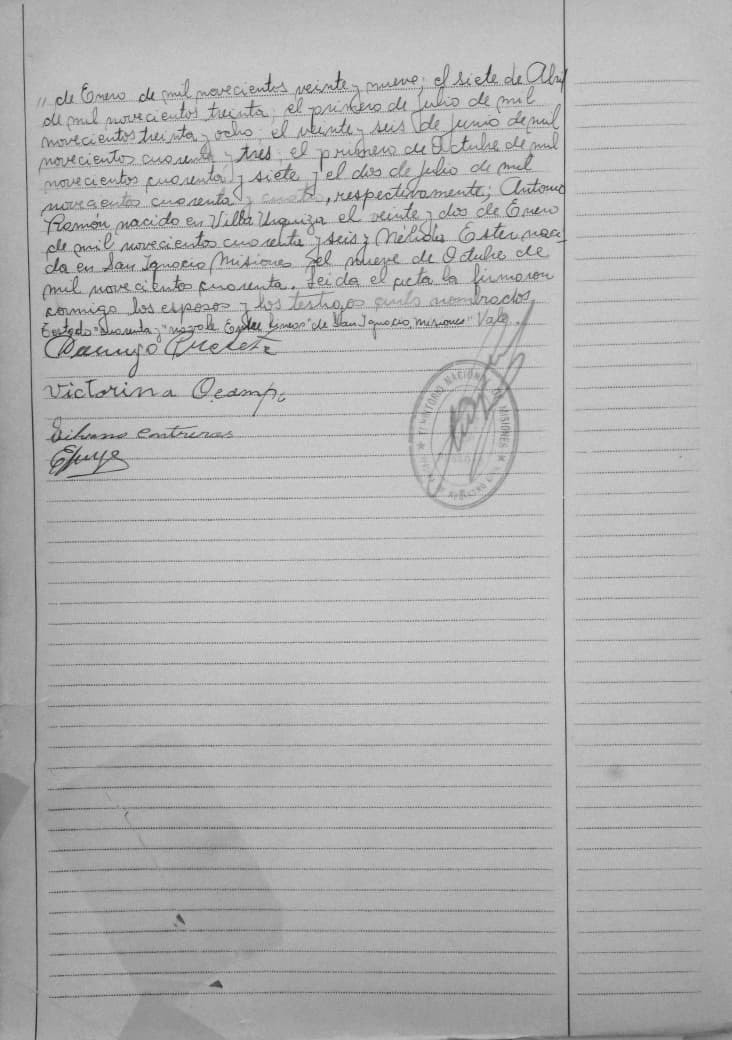 " de Enero de mil novecientos veinte y nueve; el siete de Abril
de mil novecientos treinta; el primero de Julio de mil
novecientos treinta y ocho; el veinte y seis de Junio de mil
novecientos cuarenta y tres; el primero de Octubre de mil
novecientos cuarenta y siete y el dos de Julio de mil
novecientos cuarenta y cuatro, respectivamente; Antonio
Ramón nacido en Villa Urquiza el veinte y dos de Enero
de mil novecientos cuarenta y seis y Nélida Ester naci-
da en San Ignacio Misiones el nueve de Octubre de
mil novecientos cuarenta. Leida el acta la firmaron
conmigo los esposos y los testigos arriba nombrados
Testado "cuarenta y" no vale Entre lineas "de San Ignacio Misiones" Vale.
Victorina Ocampo
Silvano Contreras
TERRITORIO NACIONAL DE MISIONES